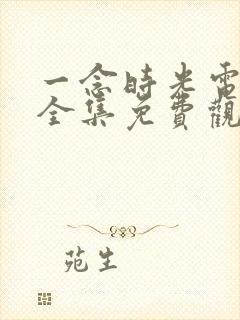 一念時光電
全集免費觀
苑生